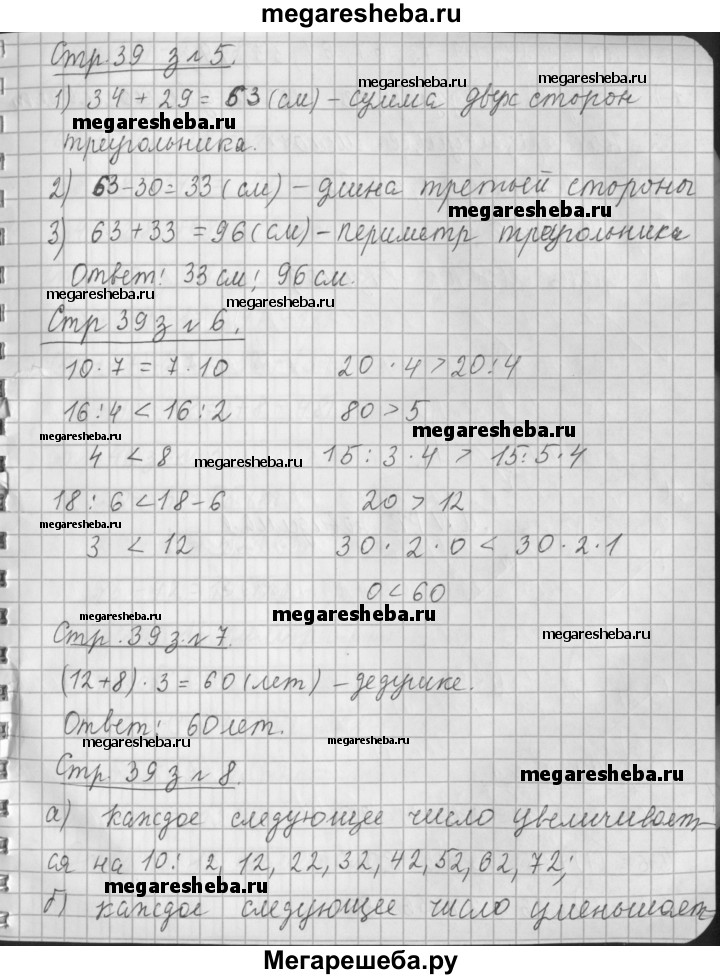 megaresheba.ru
Стр. 39 з № 5.
megaresheba.ru megaresheba.ru
1) 34 + 29 = 63 (см) – сумма двух сторон
megaresheba.ru
треугольника.
2) 63 - 30 = 33 (см) – длина третьей стороны
megaresheba.ru
3) 63 + 33 = 96 (см) – периметр треугольника
Ответ: 33 см; 96 см.
megaresheba.ru megaresheba.ru
Стр 39 з № 6.
10 · 7 = 7 · 10 20 · 4 > 20 : 4
16 : 4 < 16 : 2 80 > 5
megaresheba.ru megaresheba.ru
4 < 8 megaresheba.ru 15 : 3 · 4 > 15 : 5 · 4
18 : 6 < 18 - 6 20 > 12
megaresheba.ru
3 < 12 30 · 2 · 0 < 30 · 2 · 1
0 < 60
megaresheba.ru megaresheba.ru
Стр. 39 з. № 7. megaresheba.ru
(12 + 8) · 3 = 60 (лет) – дедушке.
Ответ: 60 лет.
megaresheba.ru megaresheba.ru
Стр. 39 з № 8. megaresheba.ru
а) каждое следующее число увеличивает-
ся на 10: 2, 12, 22, 32, 42, 52, 62, 72;
megaresheba.ru
б) каждое следующее число уменьшает-
Мегарешеба.ру